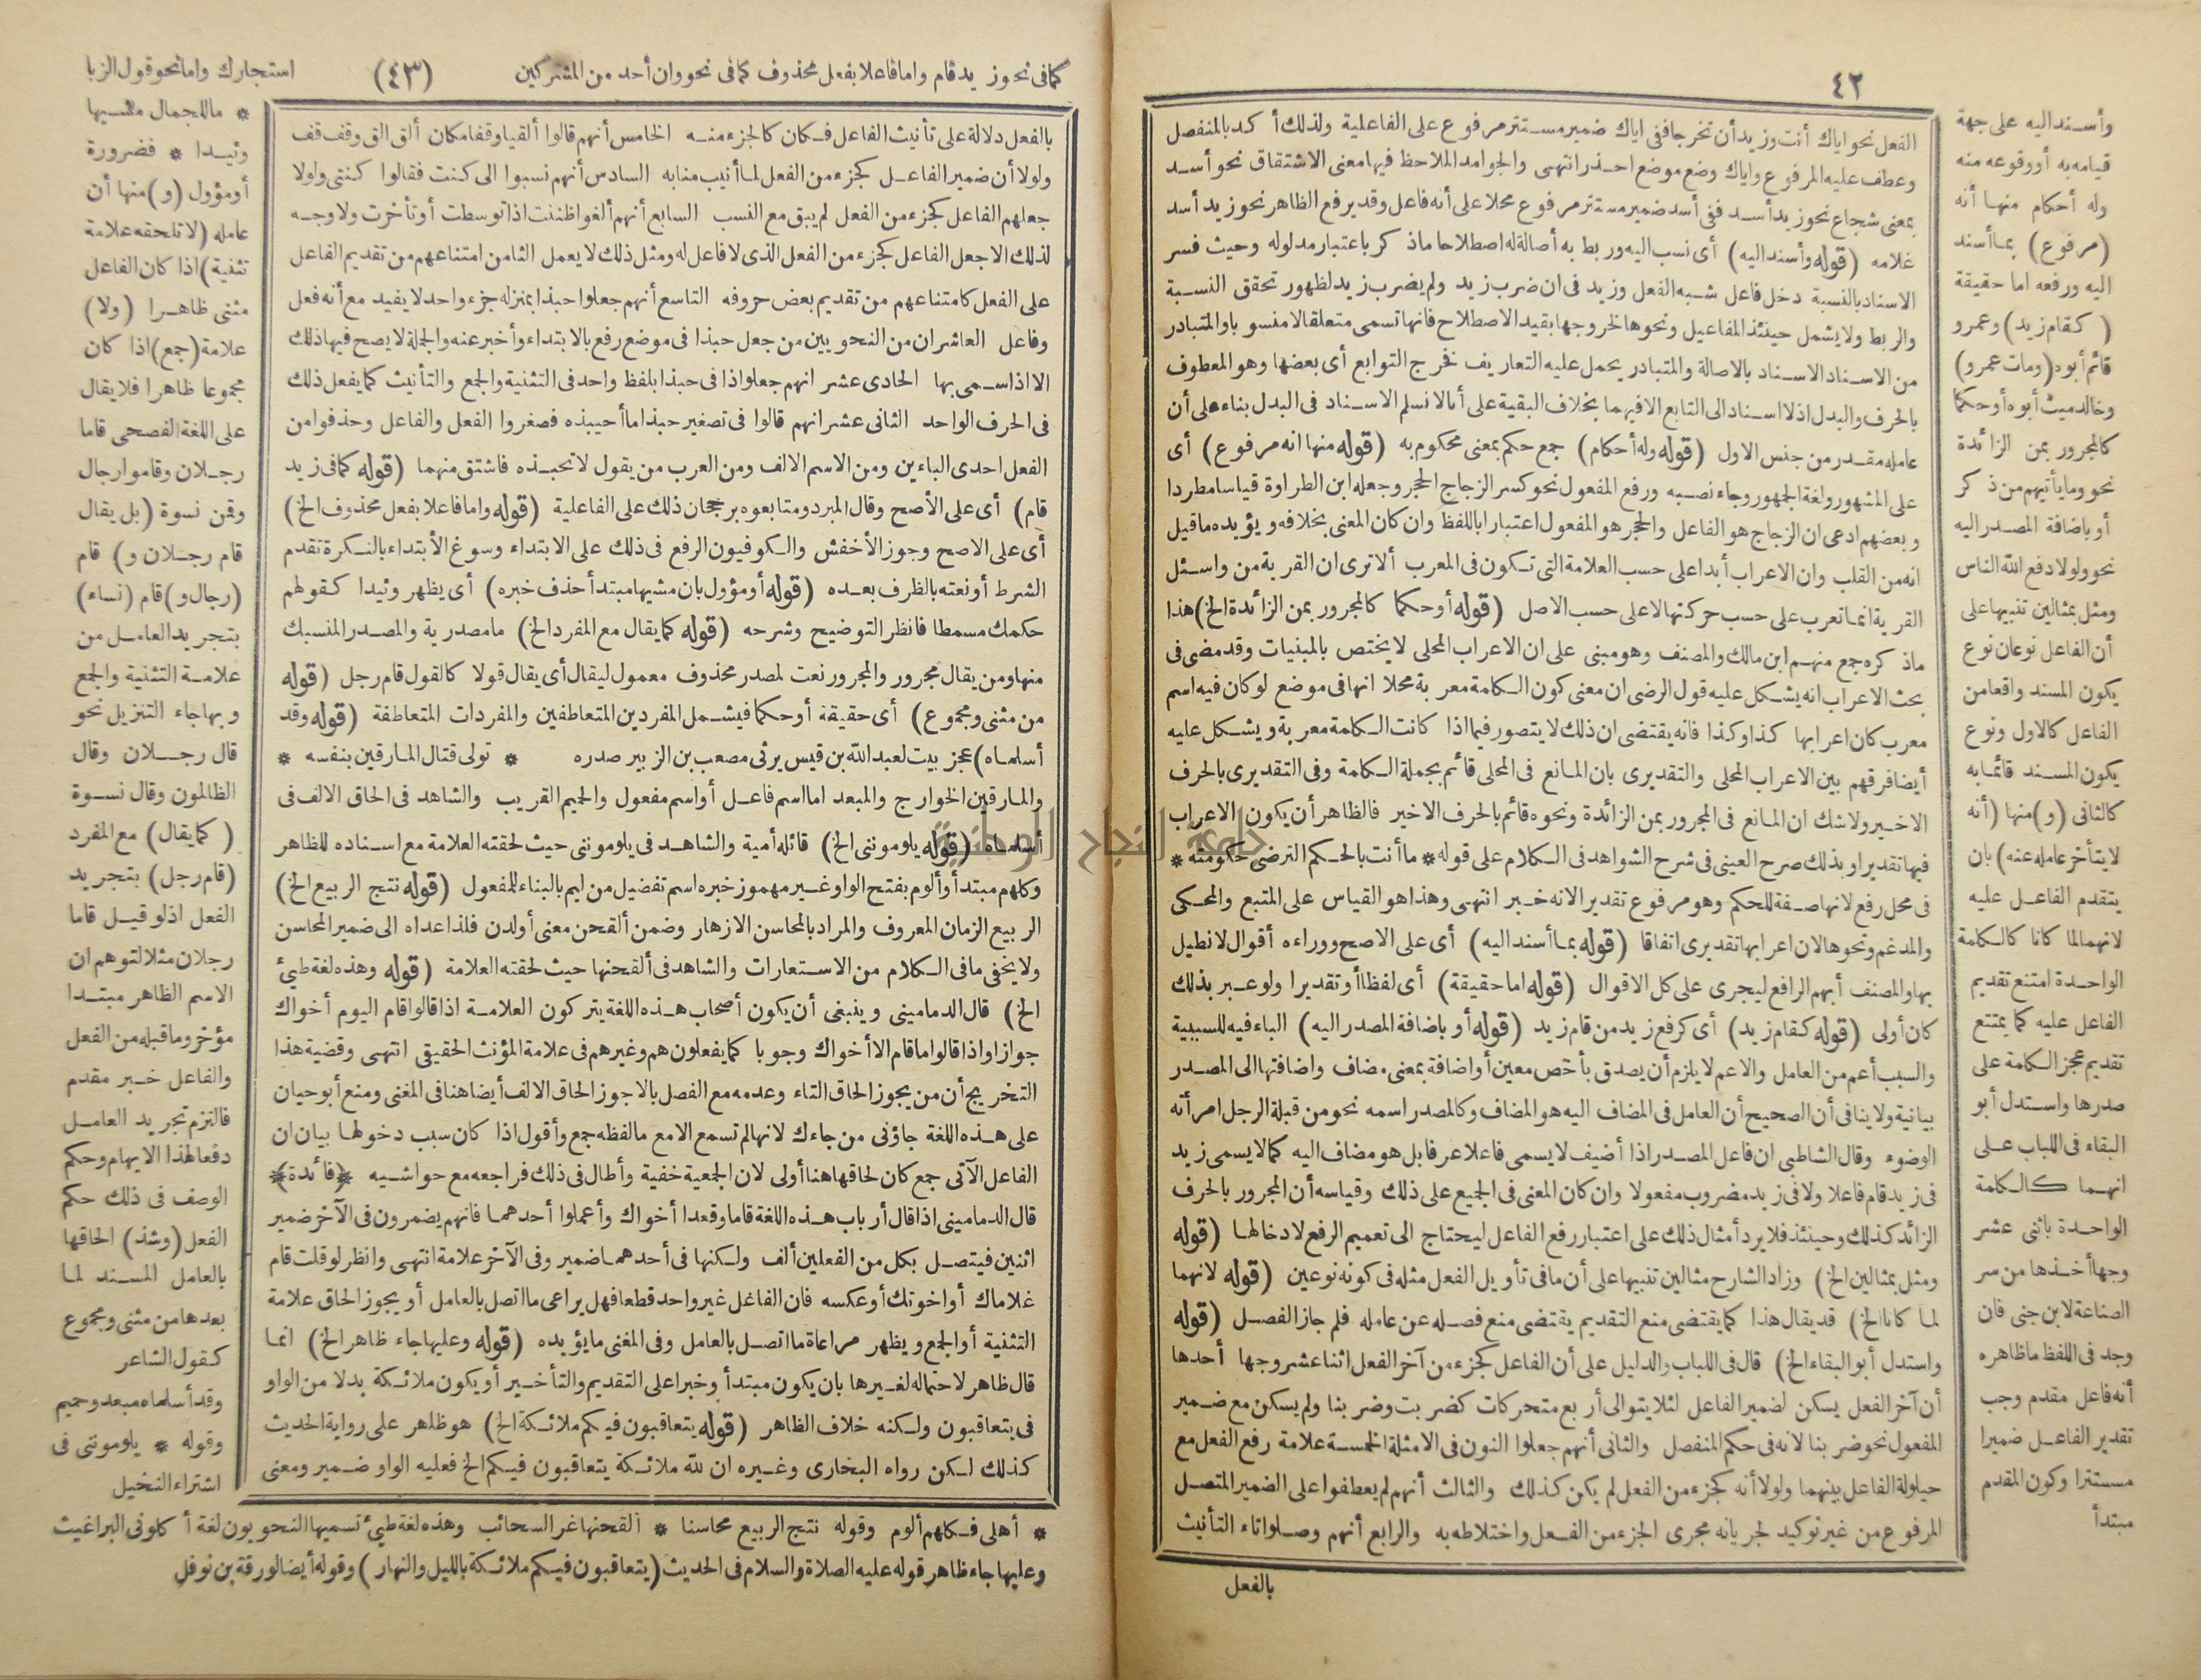 ٤٢
وأسند اليه على جهة
قيامه به أو وقوعه منه
وله أحكام منها أنه
(مرفوع) بما أسند
اليه ورفعه اما حقيقة
(كقام زيد) وعمرو
قائم أبوه (ومات عمرو)
وخالد ميت أبوه أو حكما
كالمجرور بمن الزائدة
نحو وما يأتيهم من ذكر
أو باضافة المصدر اليه
نحو ولولا دفع الله الناس
ومثل بمثالين تنبيها على
أن الفاعل نوعان نوع
يكون المسند واقعا من
الفاعل كالاول ونوع
يكون المسند قائما به
كالثانى (و) منها (أنه
لا يتأخر عامله عنه) بان
يتقدم الفاعل عليه
لانهما لما كانا كالكلمة
الواحدة امتنع تقديم
الفاعل عليه كما يمتنع
تقديم عجز الكلمة على
صدرها واستدل أبو
البقاء فى اللباب على
انهما كالكلمة
الواحدة باثنى عشر
وجها أخذها من سر
الصناعة لابن جنى فان
وجد فى اللفظ ما ظاهره
أنه فاعل مقدم وجب
تقدير الفاعل ضميرا
مستترا وكون المقدم
مبتدأ
الفعل نحو اياك أنت وزيد أن تخرجا ففى اياك ضمير مستتر مرفوع على الفاعلية ولذلك أكد بالمنفصل
وعطف عليه المرفوع واياك وضع موضع احذر انتهى والجوامد الملاحظ فيها معنى الاشتقاق نحو أسد
بمعنى شجاع نحو زيد أسد ففى أسد ضمير مستتر مرفوع محلا على أنه فاعل وقد يرفع الظاهر نحو زيد أسد
غلامه (قوله وأسند اليه) أى نسب اليه وربط به أصالة له اصطلاحا ماذكر باعتبار مدلوله وحيث فسر
الاسناد بالنسبة دخل فاعل شبه الفعل وزيد فى ان ضرب زيد ولم يضرب زيد لظهور تحقق النسبة
والربط ولا يشمل حينئذ المفاعيل ونحوها لخروجها بقيد الاصطلاح فانها تسمى متعلقا لا منسوبا والمتبادر
من الاسناد الاسناد بالاصالة والمتبادر يحمل عليه التعاريف فخرج التوابع أى بعضها وهو المعطوف
بالحرف والبدل اذ لا اسناد الى التابع الا فيهما بخلاف البقية على أنا لا نسلم الاسناد فى البدل بناء على أن
عامله مقدر من جنس الاول (قوله وله أحكام) جمع حكم بمعنى محكوم به (قوله منها انه مرفوع) أى
على المشهور ولغة الجمهور وجاء نصبه ورفع المفعول نحو كسر الزجاج الحجر وجعله ابن الطراوة قياسا مطردا
وبعضهم ادعى ان الزجاج هو الفاعل والحجر هو المفعول اعتبارا باللفظ وان كان المعنى بخلافه ويؤيده ما قيل
انه من القلب وان الاعراب أبدا على حسب العلامة التى تكون فى المعرب ألا ترى ان القرية من واسئل
القرية انما تعرب على حسب حركتها لا على حسب الاصل (قوله أو حكما كالمجرور بمن الزائدة الخ) هذا
ماذكره جمع منهم ابن مالك والمصنف وهو مبنى على ان الاعراب المحلى لا يختص بالمبنيات وقد مضى فى
بحث الاعراب انه يشكل عليه قول الرضى ان معنى كون الكلمة معربة محلا انها فى موضع لو كان فيه اسم
معرب كان اعرابها كذا وكذا فانه يقتضى ان ذلك لا يتصور فيما اذا كانت الكلمة معربة ويشكل عليه
أيضا فرقهم بين الاعراب المحلى والتقديرى بان المانع فى المحلى قائم بجملة الكلمة وفى التقديرى بالحرف
الاخير ولا شك ان المانع فى المجرور بمن الزائدة ونحوه قائم بالحرف الاخير فالظاهر أن يكون الاعراب
فيها تقديرا وبذلك صرح العينى فى شرح الشواهد فى الكلام على قوله * ما أنت بالحكم الترضى حكومته *
فى محل رفع لانها صفة للحكم وهو مرفوع تقديرا لانه خبر انتهى وهذا هو القياس على المتبع والمحكى
والمدغم ونحوها لان اعرابها تقديرى اتفاقا (قوله بما أسند اليه) أى على الاصح ووراءه أقوال لا نطيل
بها والمصنف أبهم الرافع ليجرى على كل الاقوال (قوله اما حقيقة) أى لفظا أو تقديرا ولو عبر بذلك
كان أولى (قوله كقام زيد) أى كرفع زيد من قام زيد (قوله أو باضافة المصدر اليه) الباء فيه للسببية
والسبب أعم من العامل والاعم لا يلزم أن يصدق بأخص معين أو اضافة بمعنى مضاف واضافتها الى المصدر
بيانية ولا ينافى أن الصحيح أن العامل فى المضاف اليه هو المضاف وكالمصدر اسمه نحو من قبلة الرجل امرأته
الوضوء وقال الشاطبى ان فاعل المصدر اذا أضيف لا يسمى فاعلا عرفا بل هو مضاف اليه كما لا يسمى زيد
فى زيد قام فاعلا ولا فى زيد مضروب مفعولا وان كان المعنى فى الجميع على ذلك وقياسه أن المجرور بالحرف
الزائد كذلك وحينئذ فلا يرد أمثال ذلك على اعتبار رفع الفاعل ليحتاج الى تعميم الرفع لادخالها (قوله
ومثل بمثالين الخ) وزاد الشارح مثالين تنبيها على أن ما فى تأويل الفعل مثله فى كونه نوعين (قوله لانهما
لما كانا الخ) قد يقال هذا كما يقتضى منع التقديم يقتضى منع فصله عن عامله فلم جاز الفصل (قوله
واستدل أبو البقاء الخ) قال فى اللباب والدليل على أن الفاعل كجزء من آخر الفعل اثنا عشر وجها أحدها
أن آخر الفعل يسكن لضمير الفاعل لئلا يتوالى أربع متحركات كضربت وضربنا ولم يسكن مع ضمير
المفعول نحو ضربنا لانه فى حكم المنفصل والثانى أنهم جعلوا النون فى الامثلة الخمسة علامة رفع الفعل مع
حيلولة الفاعل بينهما ولولا أنه كجزء من الفعل لم يكن كذلك والثالث أنهم لم يعطفوا على الضمير المتصل
المرفوع من غير توكيد لجريانه مجرى الجزء من الفعل واختلاطه به والرابع أنهم وصلوا تاء التأنيث
بالفعل
كما فى نحو زيد قام واما فاعلا بفعل محذوف كما فى نحو وان أحد من المشركين (٤٣) استجارك واما نحو قول الزبا
* ما للجمال مشيها
وئيدا * فضرورة
أو مؤول (و) منها أن
عامله (لا تلحقه علامة
تثنية) اذا كان الفاعل
مثنى ظاهرا (ولا)
علامة (جمع) اذا كان
مجموعا ظاهرا فلا يقال
على اللغة الفصحى قاما
رجلان وقاموا رجال
وقمن نسوة (بل يقال
قام رجلان و) قام
(رجال و) قام (نساء)
بتجريد العامل من
علامة التثنية والجمع
وبها جاء التنزيل نحو
قال رجلان وقال
الظالمون وقال نسوة
(كما يقال) مع المفرد
(قام رجل) بتجريد
الفعل اذ لو قيل قاما
رجلان مثلا لتوهم ان
الاسم الظاهر مبتدا
مؤخر وما قبله من الفعل
والفاعل خبر مقدم
فالتزم تجريد العامل
دفعا لهذا الايهام وحكم
الوصف فى ذلك حكم
الفعل (وشذ) الحاقها
بالعامل المسند لما
بعدها من مثنى ومجموع
كقول الشاعر
وقد أسلماه مبعد وحميم
وقوله * يلوموننى فى
اشتراء النخيل
بالفعل دلالة على تأنيث الفاعل فكان كالجزء منه الخامس أنهم قالوا ألقيا وقفا مكان ألق الق وقف قف
ولولا أن ضمير الفاعل كجزء من الفعل لما أنيب منابه السادس أنهم نسبوا الى كنت فقالوا كنتى ولولا
جعلهم الفاعل كجزء من الفعل لم يبق مع النسب السابع أنهم ألغوا ظننت اذا توسطت أو تأخرت ولا وجه
لذلك الا جعل الفاعل كجزء من الفعل الذى لا فاعل له ومثل ذلك لا يعمل الثامن امتناعهم من تقديم الفاعل
على الفعل كامتناعهم من تقديم بعض حروفه التاسع أنهم جعلوا حبذا بمنزلة جزء واحد لا يفيد مع أنه فعل
وفاعل العاشر ان من النحويين من جعل حبذا فى موضع رفع بالابتداء وأخبر عنه والجملة لا يصح فيها ذلك
الا اذا سمى بها الحادى عشر انهم جعلوا ذا فى حبذا بلفظ واحد فى التثنية والجمع والتأنيث كما يفعل ذلك
فى الحرف الواحد الثانى عشر انهم قالوا فى تصغير حبذا ما أحيبذه فصغروا الفعل والفاعل وحذفوا من
الفعل احدى الباءين ومن الاسم الالف ومن العرب من يقول لا تحبذه فاشتق منهما (قوله كما فى زيد
قام) أى على الأصح وقال المبرد ومتابعوه برجحان ذلك على الفاعلية (قوله واما فاعلا بفعل محذوف الخ)
أى على الاصح وجوز الأخفش والكوفيون الرفع فى ذلك على الابتداء وسوغ الأبتداء بالنكرة تقدم
الشرط أو نعته بالظرف بعده (قوله أو مؤول بان مشيها مبتدأ حذف خبره) أى يظهر وئيدا كقولهم
حكمك مسمطا فانظر التوضيح وشرحه (قوله كما يقال مع المفرد الخ) ما مصدرية والمصدر المنسبك
منها ومن يقال مجرور والمجرور نعت لمصدر محذوف معمول ليقال أى يقال قولا كالقول قام رجل (قوله
من مثنى ومجموع) أى حقيقة أو حكما فيشمل المفردين المتعاطفين والمفردات المتعاطفة (قوله وقد
أسلماه) عجز بيت لعبد الله بن قيس يرثى مصعب بن الزبير صدره * تولى قتال المارقين بنفسه *
والمارقين الخوارج والمبعد اما اسم فاعل أو اسم مفعول والحميم القريب والشاهد فى الحاق الالف فى
أسلماه (قوله يلوموننى الخ) قائله أمية والشاهد فى يلوموننى حيث لحقته العلامة مع اسناده للظاهر
وكلهم مبتدأ وألوم بفتح الواو غير مهموز خبره اسم تفضيل من ليم بالبناء للمفعول (قوله نتج الربيع الخ)
الربيع الزمان المعروف والمراد بالمحاسن الازهار وضمن ألقحن معنى أولدن فلذا عداه الى ضمير المحاسن
ولا يخفى ما فى الكلام من الاستعارات والشاهد فى ألقحنها حيث لحقته العلامة (قوله وهذه لغة طيئ
الخ) قال الدمامينى وينبغى أن يكون أصحاب هذه اللغة يتركون العلامة اذا قالوا قام اليوم أخواك
جوازا واذا قالوا ما قام الا أخواك وجوبا كما يفعلون هم وغيرهم فى علامة المؤنث الحقيقى انتهى وقضية هذا
التخريج أن من يجوز الحاق التاء وعدمه مع الفصل بالا جوز الحاق الالف أيضا هنا فى المغنى ومنع أبو حيان
على هذه اللغة جاؤنى من جاءك لانها لم تسمع الا مع ما لفظه جمع وأقول اذا كان سبب دخولها بيان ان
الفاعل الآتى جمع كان لحاقها هنا أولى لان الجمعية خفية وأطال فى ذلك فراجعه مع حواشيه ﴿فائدة﴾
قال الدمامينى اذا قال أرباب هذه اللغة قاما وقعدا أخواك وأعملوا أحدهما فانهم يضمرون فى الآخر ضمير
اثنين فيتصل بكل من الفعلين ألف ولكنها فى أحدهما ضمير وفى الآخر علامة انتهى وانظر لو قلت قام
غلاماك أو اخوتك أو عكسه فان الفاعل غير واحد قطعا فهل يراعى ما اتصل بالعامل أو يجوز الحاق علامة
التثنية أو الجمع ويظهر مراعاة ما اتصل بالعامل وفى المغنى ما يؤيده (قوله وعليها جاء ظاهر الخ) انما
قال ظاهر لاحتماله لغيرها بان يكون مبتدأ وخبرا على التقديم والتأخير أو يكون ملائكة بدلا من الواو
فى يتعاقبون ولكنه خلاف الظاهر (قوله يتعاقبون فيكم ملائكة الخ) هو ظاهر على رواية الحديث
كذلك لكن رواه البخارى وغيره ان لله ملائكة يتعاقبون فيكم الخ فعليه الواو ضمير ومعنى
* أهلى فكلهم ألوم وقوله نتج الربيع محاسنا * ألقحنها غر السحائب وهذه لغة طيئ تسميها النحويون لغة أكلونى البراغيث
وعليها جاء ظاهر قوله عليه الصلاة والسلام فى الحديث (يتعاقبون فيكم ملائكة بالليل والنهار) وقوله أيضا لورقة بن نوفل
جامعة النجاح الوطنية